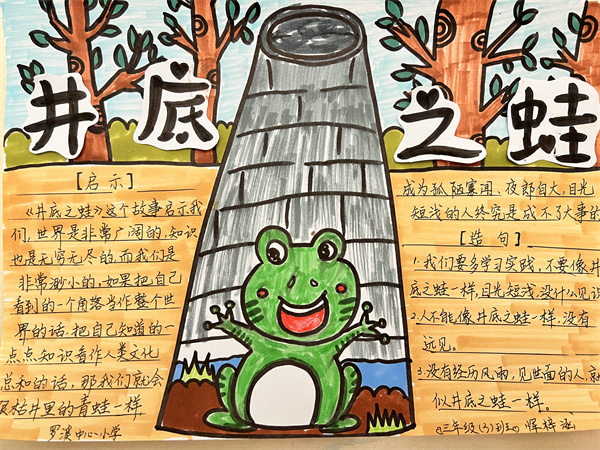 井底之蛙
【启示】
《井底之蛙》这个故事启示我
们,世界是非常广阔的,知识
也是无穷无尽的,而我们是
非常渺小的,如果把自己
看到的一个角落当作整个世
界的话,把自己知道的一
点点知识看作人类文化
总和的话,那我们就会
跟枯井里的青蛙一样.
罗溪中心小学
成为孤陋寡闻、夜郎自大,目光
短浅的人终究是成不了大事的
【造句】
1.我们要多学习实践,不要像井
底之蛙一样,目光短浅,没什么见识
2.人不能像井底之蛙一样.没有
远见。
3.没有经历风雨,见世面的人,就
似井底之蛙一样。
三年级(3)班 梓涵